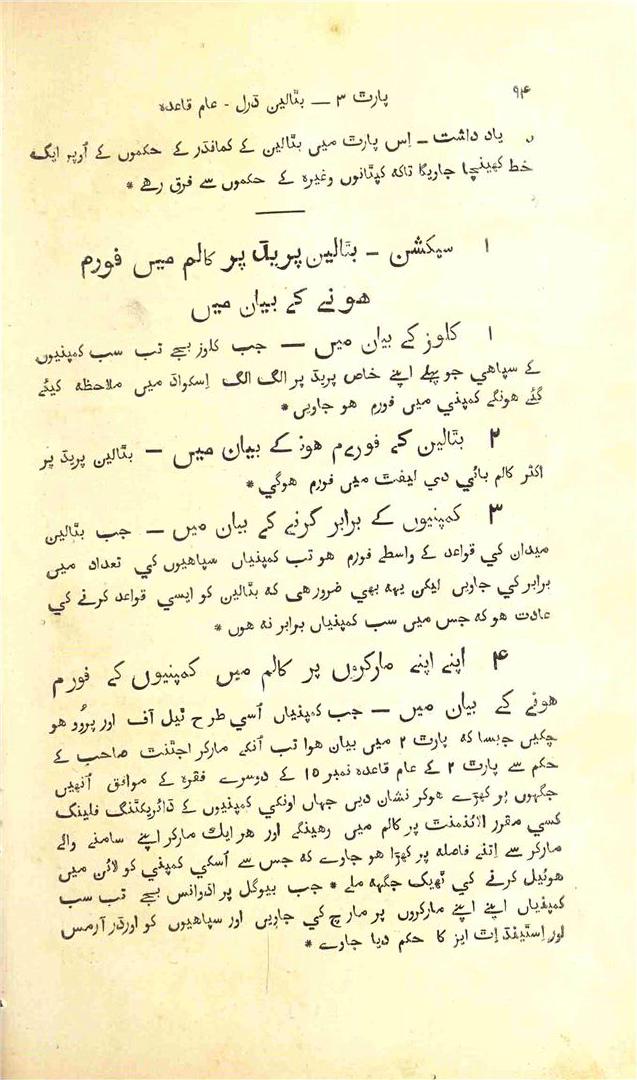 ۹۴
پارٹ ۳ ــ بٹالین ڈرل - عام قاعدہ
یاد داشت ــ اِس پارٹ میں بٹالین کے کمانڈر کے حکموں کے اُوپر ایک
خط کھینچا جاویگا تاکہ کپتانوں وغیرہ کے حکموں سے فرق رهے *
۱ سیکشن ــ بٹالین پریڈ پر کالم میں فورم
هونے کے بیان میں
۱ کلوز کے بیان میں ــ جب کلوز بجے تب سب کمپنیوں
کے سپاهي جو پہلے اپنے خاص پریڈ پر الگ الگ اِسکواڈ میں ملاحظہ کیئے
گئے هونگے کمپني میں فورم هو جاویں *
۲ بٹالین کے فورم هونے کے بیان میں ــ بٹالین پریڈ پر
اکثر کالم بائي دي لیفٹ میں فورم هوگي *
۳ کمپنیوں کے برابر کرنے کے بیان میں ــ جب بٹالین
میدان کي قواعد کے واسطے فورم هو تب کمپنیاں سپاهیوں کي تعداد میں
برابر کي جاویں لیکن یہہ بھي ضرور هی کہ بٹالین کو ایسي قواعد کرنے کي
عادت هو کہ جس میں سب کمپنیاں برابر نہ هوں *
۴ اپنے اپنے مارکروں پر کالم میں کمپنیوں کے فورم
هونے کے بیان میں ــ جب کمپنیاں اُسي طرح ٹیل آف اور پروو هو
چکیں جیسا کہ پارٹ ۲ میں بیان هوا تب اُنکے مارکر اجٹنٹ صاحب کے
حکم سے پارٹ ۲ کے عام قاعدہ نمبر ۱۵ کے دوسرے فقرہ کے موافق اُنهیں
جگہوں پر کھڑے هوکر نشان دیں جہاں اونکي کمپنیوں کے ڈائریکٹنگ فلینک
کسي مقرر الائنمنٹ پر کالم میں رهینگے اور هر ایک مارکر اپنے سامنے والے
مارکر سے اِتنے فاصلہ پر کھڑا هو جاوے کہ جس سے اُسکي کمپني کو لائن میں
هوئیل کرنے کي ٹھیک جگہہ ملے * جب بیوگل پر اڈوانس بجے تب سب
کمپنیاں اپنے اپنے مارکروں پر مارچ کي جاویں اور سپاهیوں کو اورڈر آرمس
اور اِسٹینڈ اِٹ ایز کا حکم دیا جاوے *